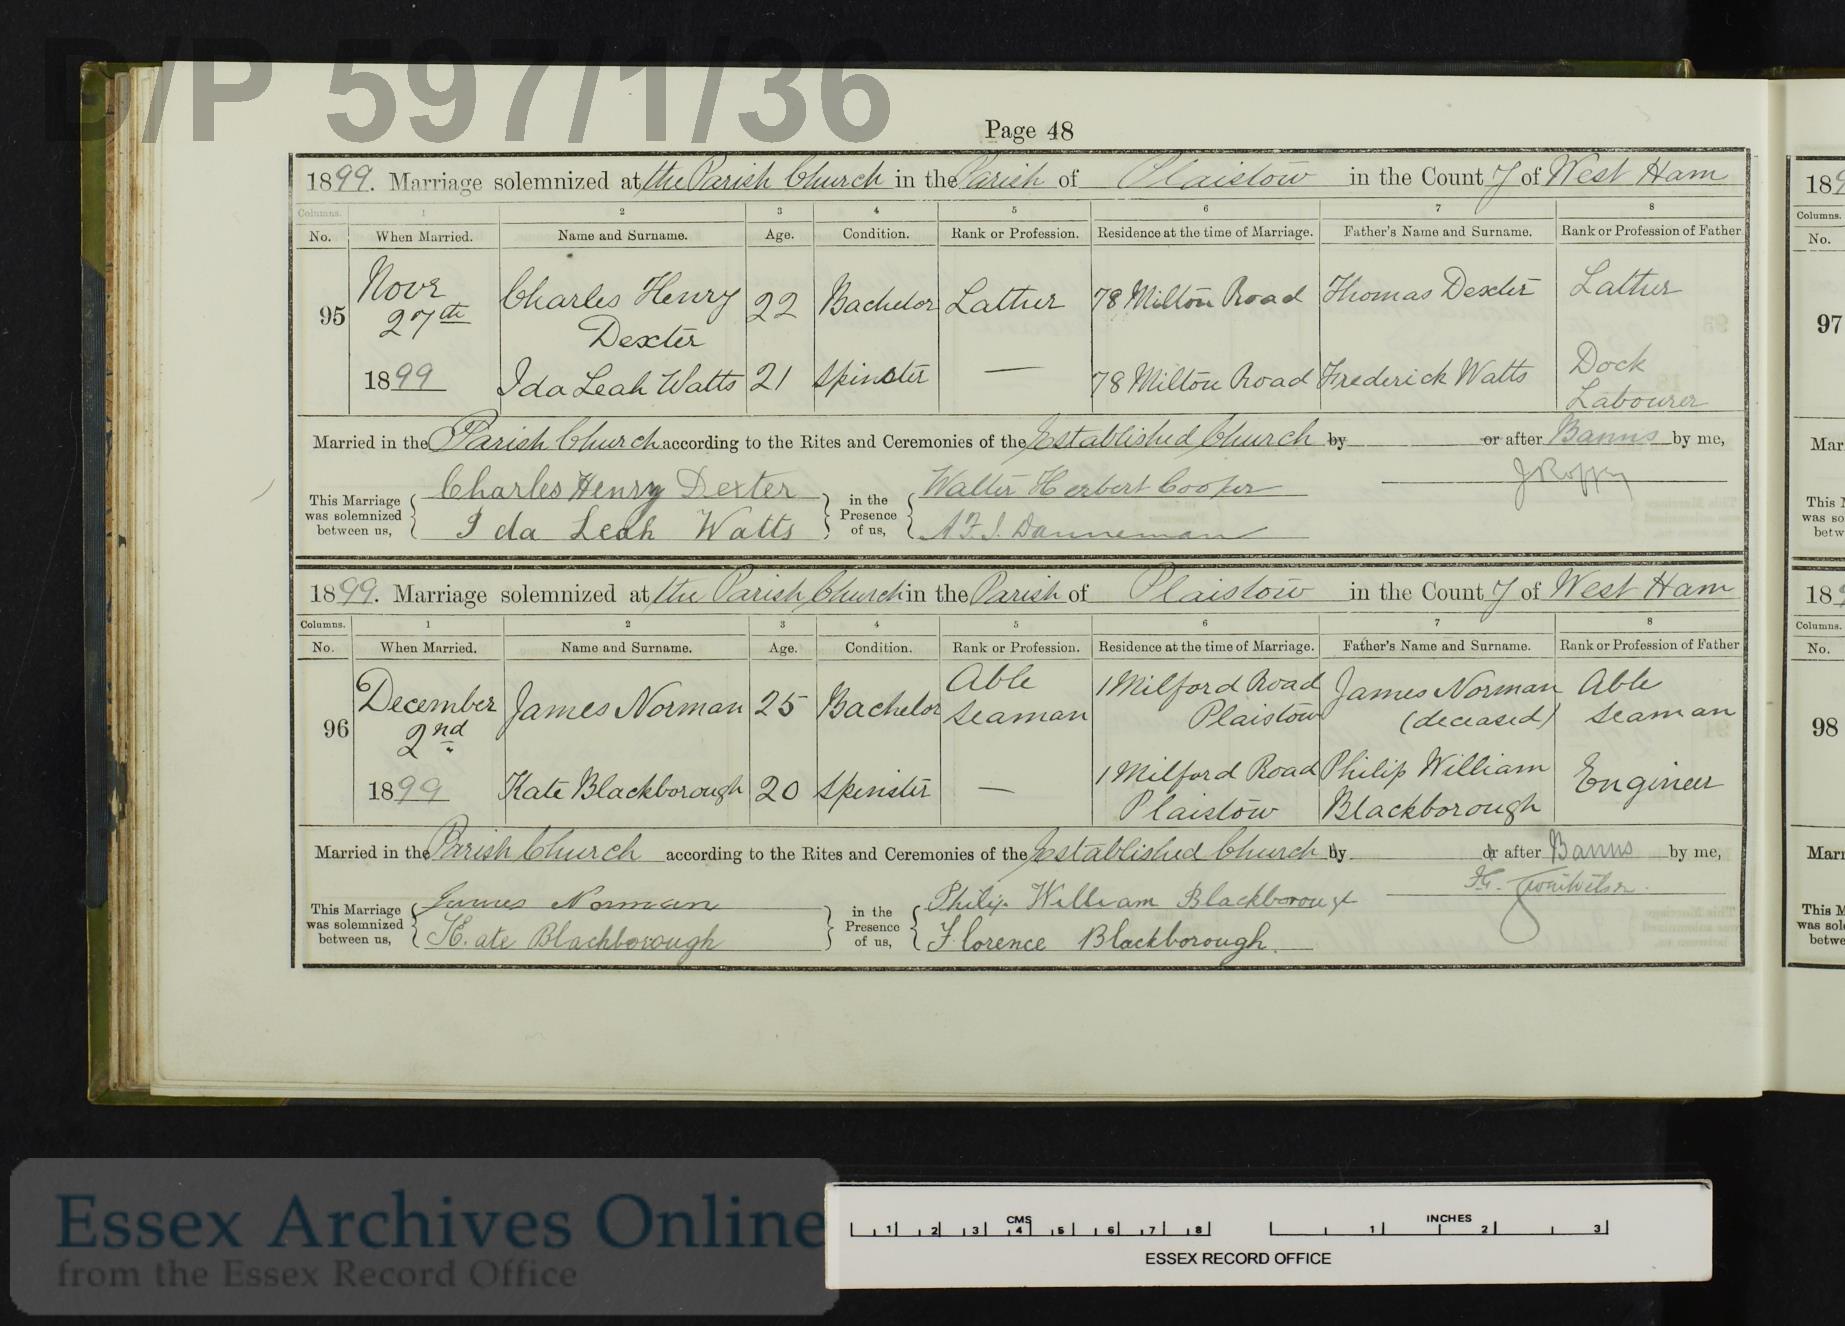 D/P 597/1/36
Page 48
1899. Marriage solemnized at the Parish Church in the Parish of Plaistow in the County of West Ham
Columns. 1 2 3 4 5 6 7 8
No. When Married. Name and Surname. Age. Condition. Rank or Profession. Residence at the time of Marriage. Father's Name and Surname. Rank or Profession of Father
95 Novr 27th 1899
Charles Henry Dexter 22 Bachelor Lather 78 Milton Road Thomas Dexter Lather
Ida Leah Watts 21 Spinster — 78 Milton Road Frederick Watts Dock Labourer
Married in the Parish Church according to the Rites and Ceremonies of the Established Church by or after Banns by me,
This Marriage was solemnized between us, Charles Henry Dexter
Ida Leah Watts
in the Presence of us, Walter Herbert Cooper
Danneman
1899. Marriage solemnized at the Parish Church in the Parish of Plaistow in the County of West Ham
Columns. 1 2 3 4 5 6 7 8
No. When Married. Name and Surname. Age. Condition. Rank or Profession. Residence at the time of Marriage. Father's Name and Surname. Rank or Profession of Father
96 December 2nd 1899
James Norman 25 Bachelor Able Seaman 1 Milford Road Plaistow James Norman (deceased) Able Seaman
Kate Blackborough 20 Spinster — 1 Milford Road Plaistow Philip William Blackborough Engineer
Married in the Parish Church according to the Rites and Ceremonies of the Established Church by or after Banns by me,
This Marriage was solemnized between us, James Norman
Kate Blackborough
in the Presence of us, Philip William Blackborough
Florence Blackborough.
189
Columns.
No.
97
189
Columns.
No.
98
Essex Archives Online
from the Essex Record Office
CMS 1 2 3 4 5 6 7 8
INCHES 1 2 3
ESSEX RECORD OFFICE